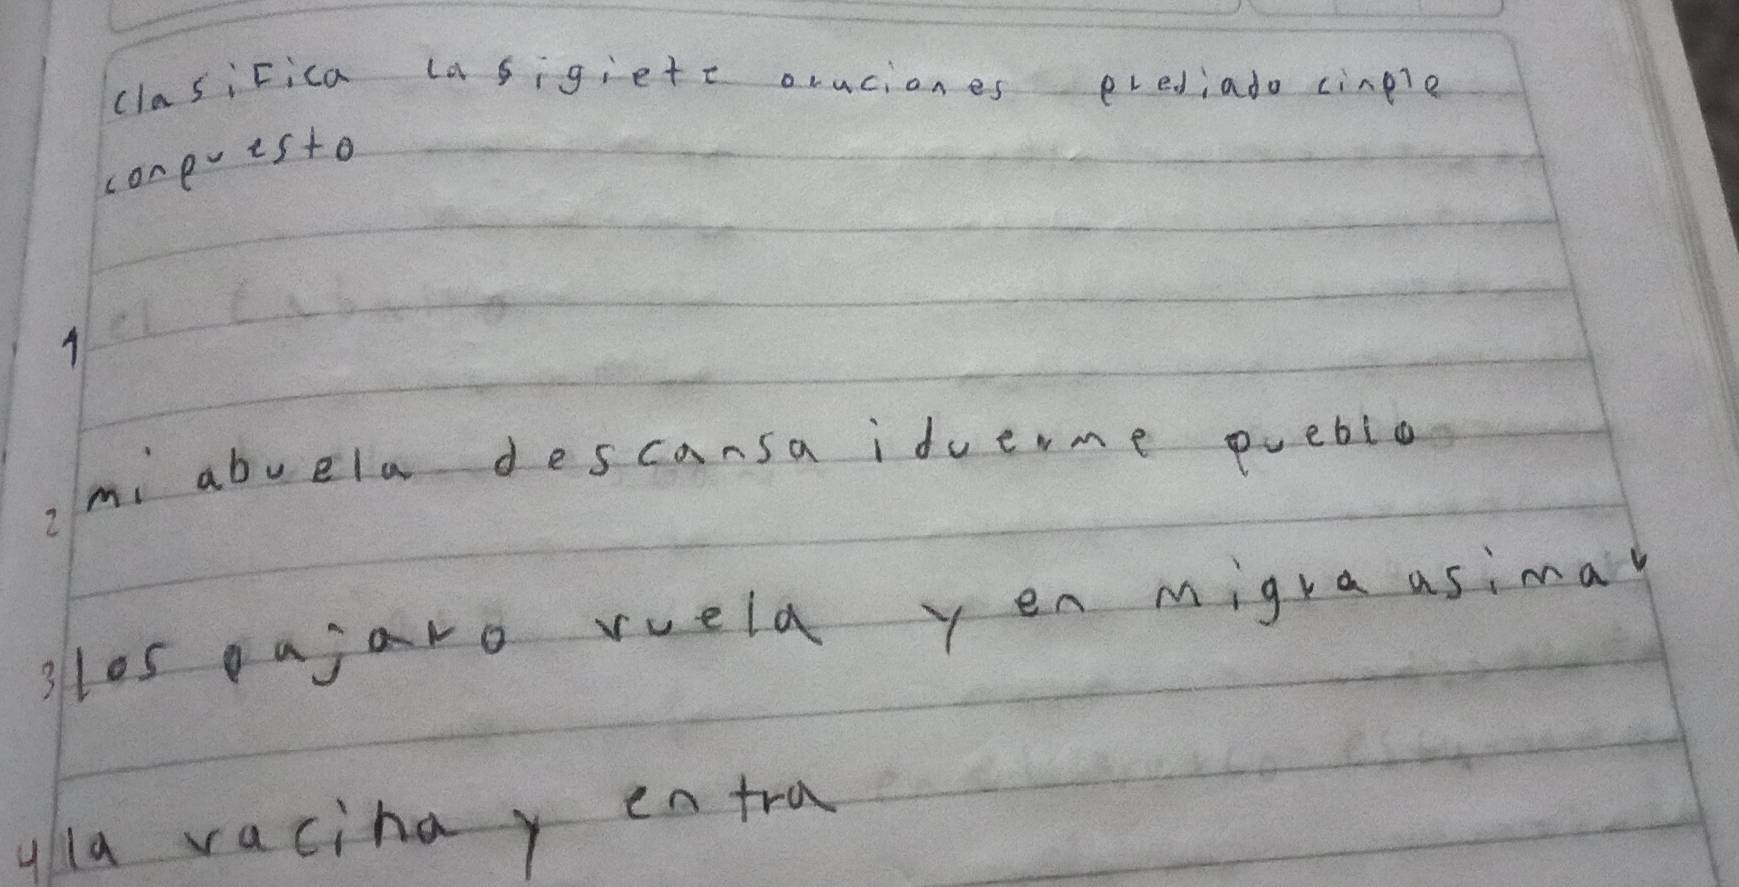 clasifica la sigiete oraciones prediado cinple
conpuesto
1
2 mi abuela descansa iduerme pueblo
3 los pajaro vuela y en migra asimar
4 la vacina y entra